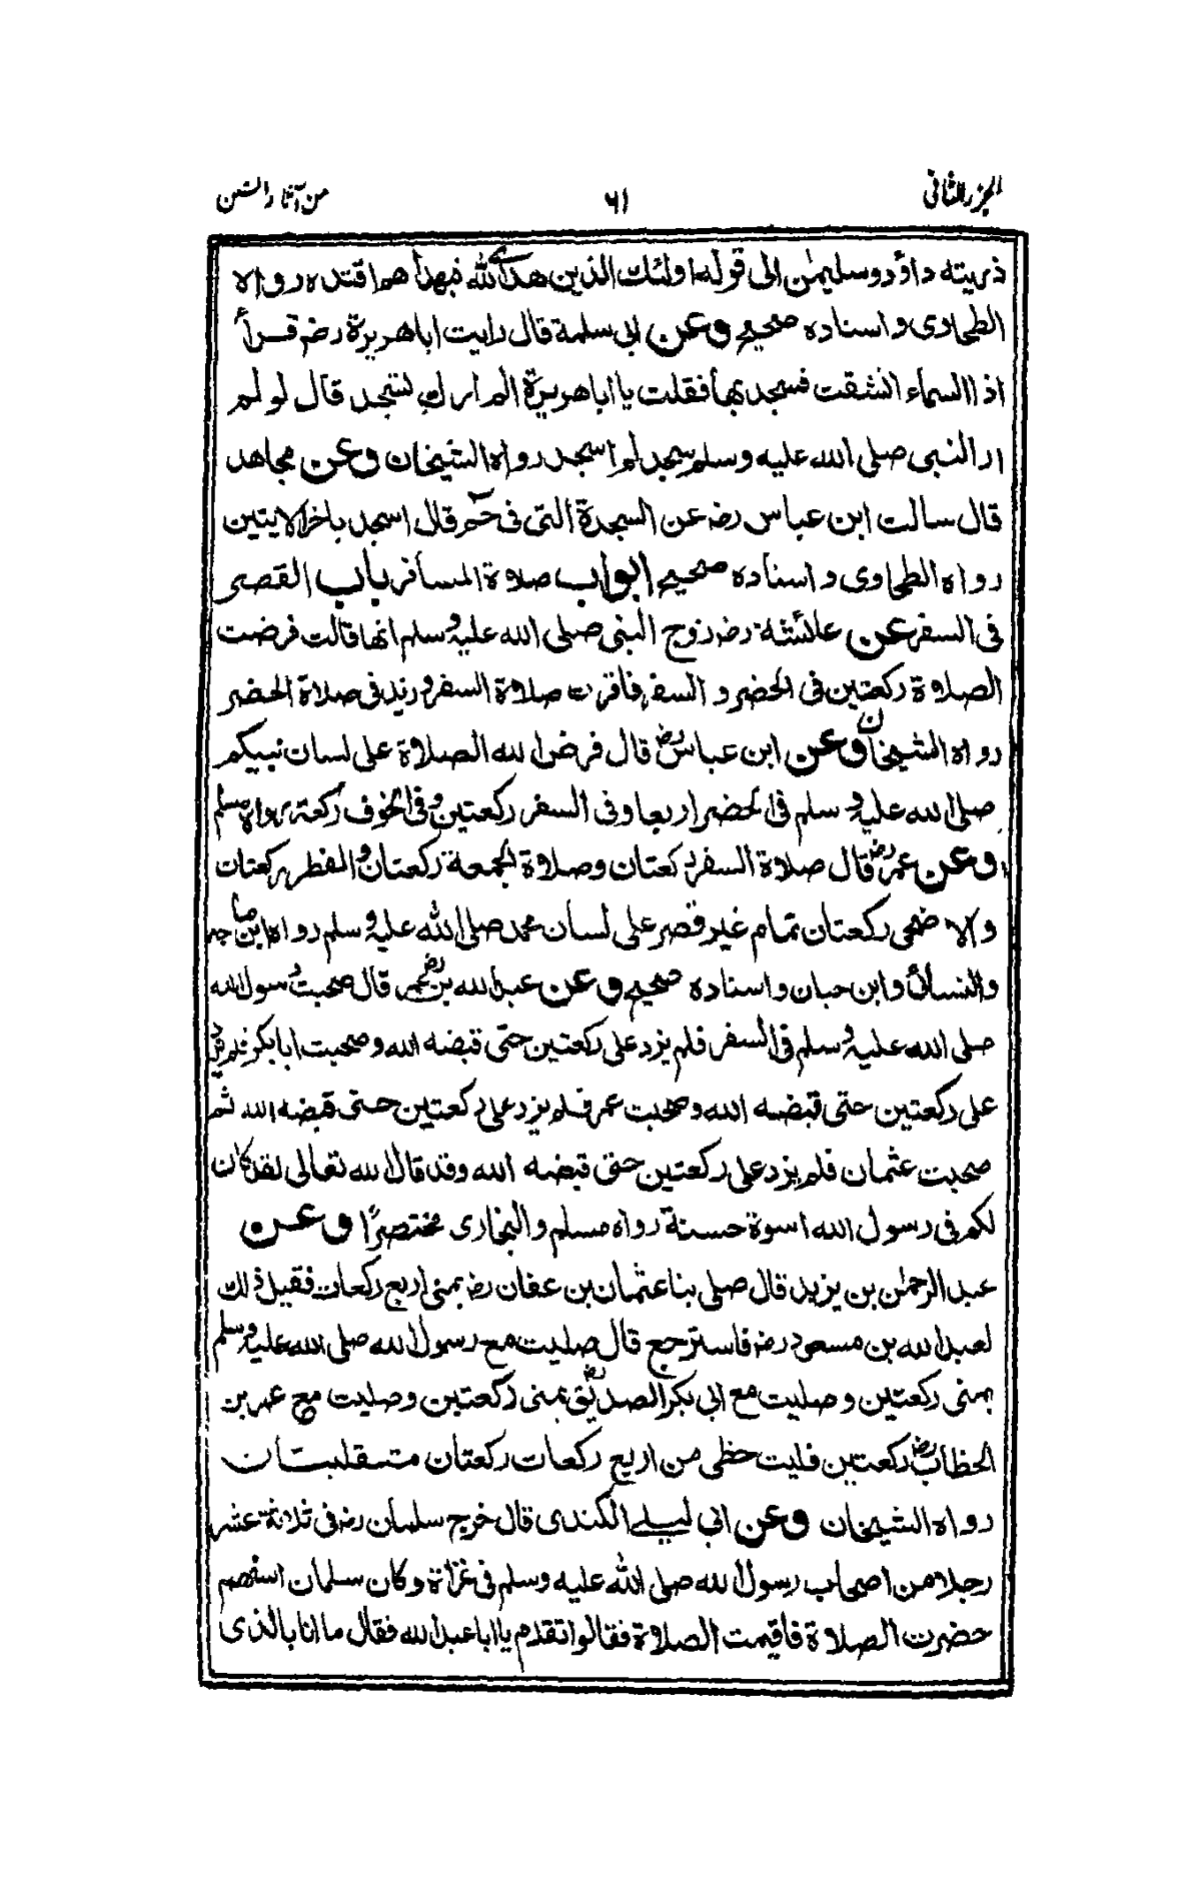 الجزء الثاني ٦١ من آثار السنن
ذريته داؤد وسليمٰن الى قوله اولئك الذين هدى الله فبهداهم اقتده رواه
الطحاوى واسناده صحيح وعن ابى سلمة قال رايت اباهريرة رضـ قـرأ
اذا السماء انشقت فسجد بها فقلت يا اباهريرة الم ارك تسجد قال لو لم
ار النبى صلى الله عليه وسلم سجد لم اسجد رواه الشيخان وعن مجاهد
قال سالت ابن عباس رضـ عن السجدة التى فى حم قال اسجد باخر الايتين
رواه الطحاوى واسناده صحيح ابواب صلاة المسافر باب القصر
فى السفر عن عائشة رضـ زوج النبى صلى الله عليه وسلم انها قالت فرضت
الصلاة ركعتين فى الحضر والسفر فاقرت صلاة السفر وزيد فى صلاة الحضر
رواه الشيخان وعن ابن عباس رضـ قال فرض الله الصلاة على لسان نبيكم
صلى الله عليه وسلم فى الحضر اربعا وفى السفر ركعتين وفى الخوف ركعة رواه مسلم
وعن عمر رضـ قال صلاة السفر ركعتان وصلاة الجمعة ركعتان والفطر ركعتان
والاضحى ركعتان تمام غير قصر على لسان محمد صلى الله عليه وسلم رواه ابن ماجه
والنسائى وابن حبان واسناده صحيح وعن عبد الله بن عمر رضـ قال صحبت رسول الله
صلى الله عليه وسلم فى السفر فلم يزد على ركعتين حتى قبضه الله وصحبت ابابكر فلم يزد
على ركعتين حتى قبضه الله وصحبت عمر فلم يزد على ركعتين حتى قبضه الله ثم
صحبت عثمان فلم يزد على ركعتين حتى قبضه الله وقد قال الله تعالى لقد كان
لكم فى رسول الله اسوة حسنة رواه مسلم والبخارى مختصرًا وعـن
عبد الرحمٰن بن يزيد قال صلى بنا عثمان بن عفان رضـ بمنى اربع ركعات فقيل ذلك
لعبد الله بن مسعود رضـ فاسترجع قال صليت مع رسول الله صلى الله عليه وسلم
بمنى ركعتين وصليت مع ابى بكر الصديق رضـ بمنى ركعتين وصليت مع عمر بن
الخطاب رضـ ركعتين فليت حظى من اربع ركعات ركعتان متـقلبتـان
رواه الشيخان وعن ابى ليلى الكندى قال خرج سلمان رضـ فى ثلاثة عشر
رجلا من اصحاب رسول الله صلى الله عليه وسلم فى غزاة وكان سلمان اسنهم
حضرت الصلاة فاقيمت الصلاة فقالوا تقدم يا اباعبد الله فقال ما انا بالذى